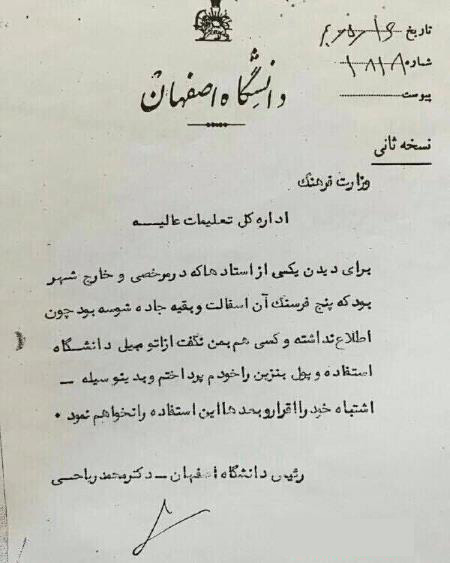 دانشگاه اصفهان
تاریخ
شماره ۱۸۱۸
پیوست
نسخه ثانی
وزارت فرهنگ
اداره کل تعلیمات عالیه
برای دیدن یکی از استادها که در مرخصی و خارج شهر
بود که پنج فرسنگ آن اسفالت و بقیه جاده شوسه بود چون
اطلاع نداشته و کسی هم بمن نگفت از اتومبیل دانشگاه
استفاده و پول بنزین را خودم پرداختم و بدینوسیله –
اشتباه خود را اقرار و بعدها این استفاده را نخواهم نمود.
رئیس دانشگاه اصفهان – دکتر محمد ریاحی